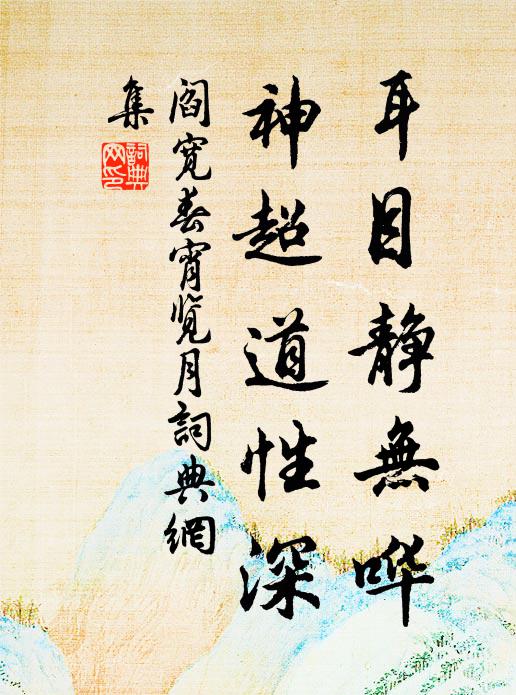 耳目静無哗
神超道性深
阎寛春宵览月詞典網
集
詞典網印